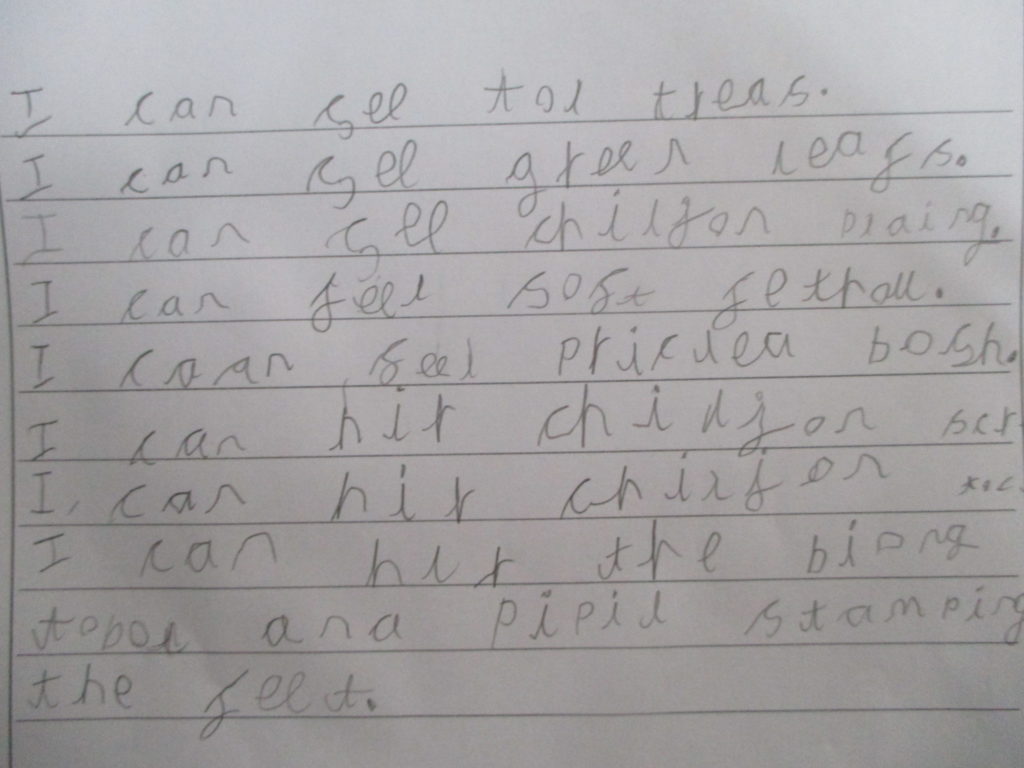 I can see tol treas.
I can see green leafs.
I can see chilfon plaing.
I can feel soft fethall.
I coan feel priclea bosh.
I can hir chilfon scr
I, can hir chilfon
I can hir the biong
tobol and pipil stamping
the feet.